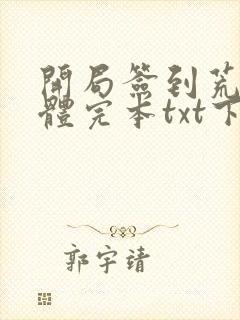 開局簽到荒
體完本txt下
郭宇靖